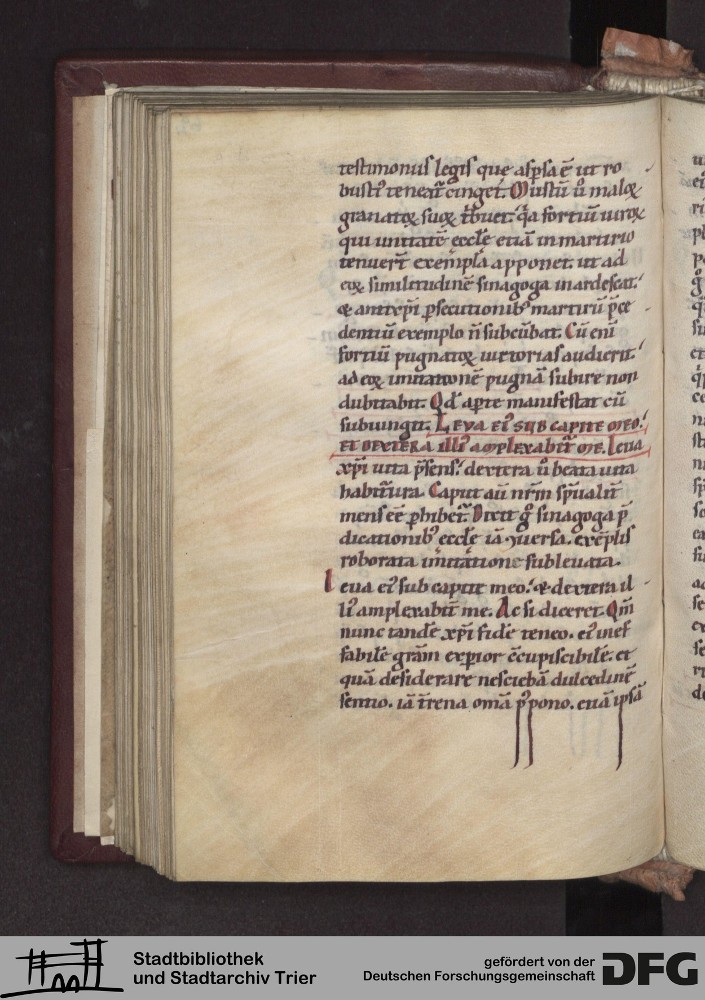 testimoniis legis que asp̄sa ē ut ro
bust᷒ teneat᷑ cinget. Mustū ū maloꝝ
granatoꝝ suoꝝ t̄buet. q̓a fortiū uiroꝝ
qui unitatē eccl̄e etiā in martirio
tenuer̄t exempla apponet. ut ad
eoꝝ similitudinē sinagoga inardescat.
& antixp̄i ꝑsecutionib᷒ martirū p̄ce
dentiū exemplo n̄ subcūbat. Cū eni
fortiū pugnatoꝝ uictorias audierit.
ad eoꝝ imitationē pugnā subire non
dubitabit. Qd̓ aꝑte manifestat cū
subiungit. LEVA EI᷒ SUB CAPITE MEO.
ET DEXTERA illi᷒ amplexabit᷑ me. Leua
xp̄i uita p̄sens. dextera ū beata uita
habit᷑ura. Caput aū nr̄m sp̄ualit᷑
mens eē ꝑhibet᷑. Dicit g̊ sinagoga p̄
dicationib᷒ eccl̄e iā ꝯuersa. exēplis
roborata imitatione subleuata.
Leua ei᷒ sub capite meo. & dextera il
li᷒ amplexabit᷑ me. Ac si diceret. Qm̄
nunc tandē xp̄i fidē teneo. ei᷒ inef
fabilē gr̄am experior ēcupiscibilē. et
quā desiderare nesciebā dulcedinē
sentio. iā t̄rena om̄a p᷒pono. etiā ipsā
Stadtbibliothek
und Stadtarchiv Trier
gefördert von der
Deutschen Forschungsgemeinschaft
DFG